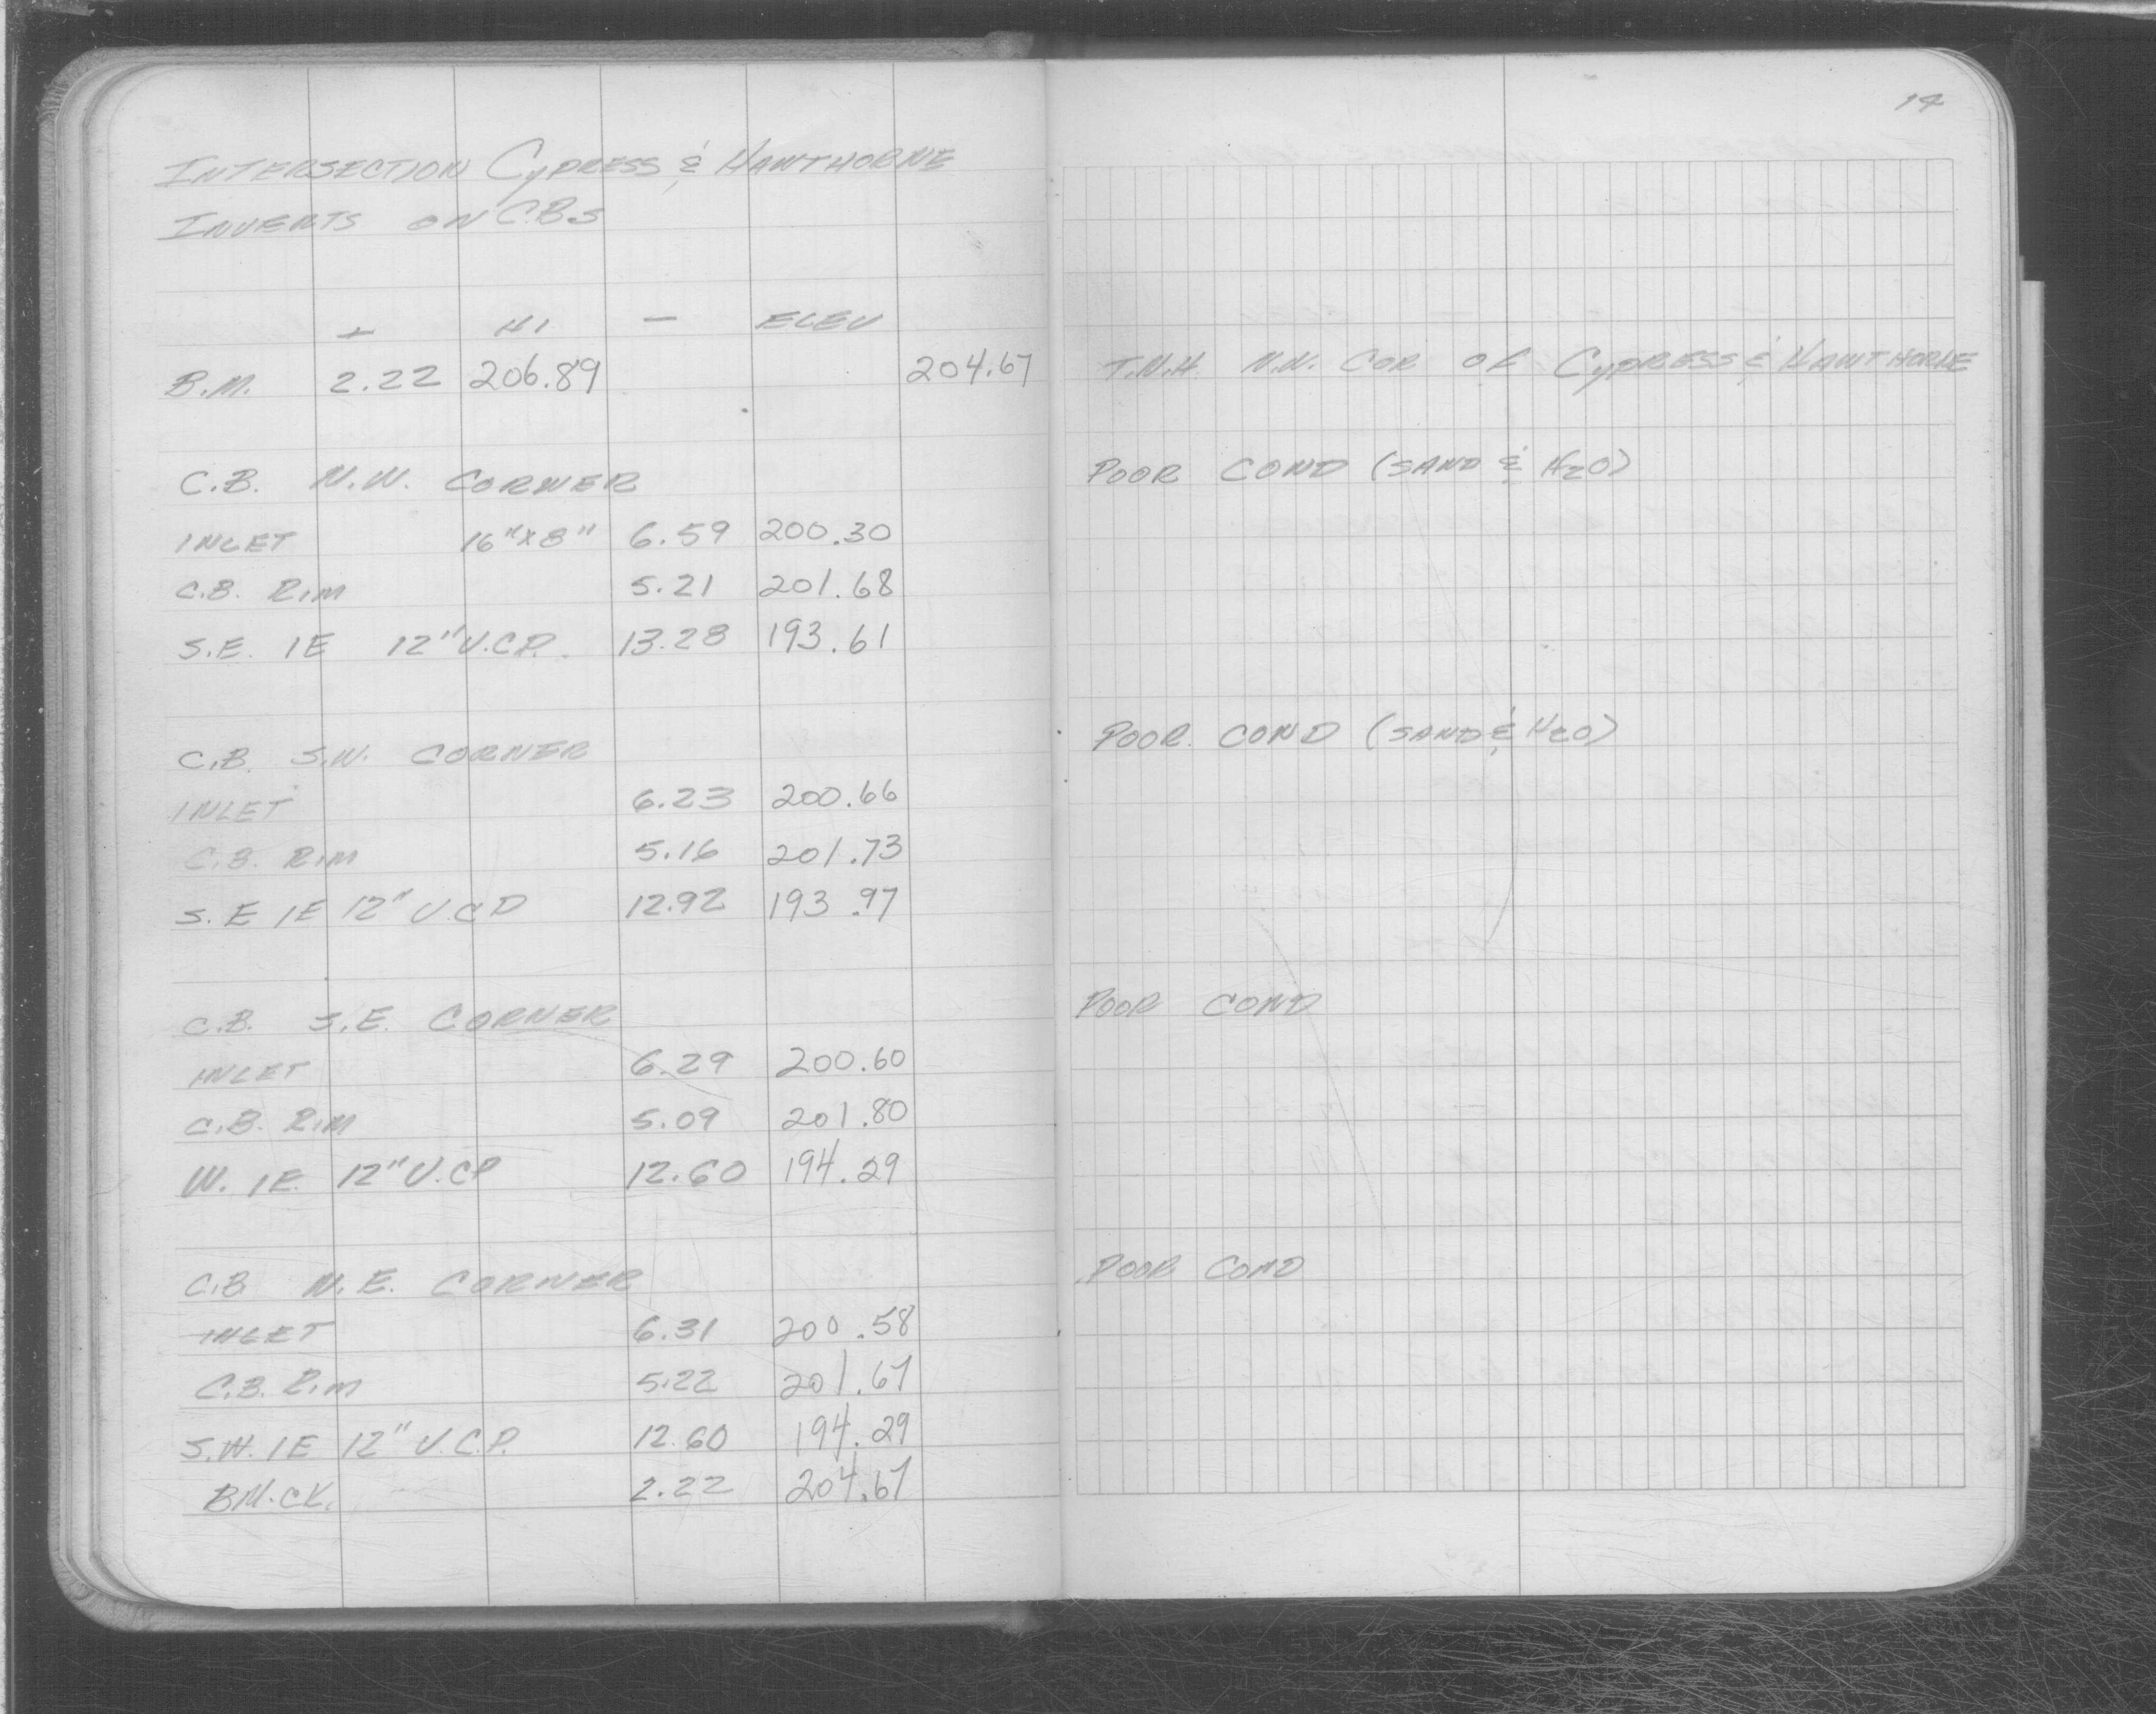 14
INTERSECTION CYPRESS & HAWTHORNE
INVERTS ON C.B.S
+ HI − ELEV
B.M. 2.22 206.89 204.67 T.N.H. N.W. COR OF CYPRESS & HAWTHORNE
C.B. N.W. CORNER POOR COND (SAND & H2O)
INLET 16"x8" 6.59 200.30
C.B. RIM 5.21 201.68
S.E. IE 12" V.C.P. 13.28 193.61
C.B. S.W. CORNER POOR COND (SAND & H2O)
INLET 6.23 200.66
C.B. RIM 5.16 201.73
S.E IE 12" V.C.P 12.92 193.97
C.B. S.E. CORNER POOR COND
INLET 6.29 200.60
C.B. RIM 5.09 201.80
W. IE 12" V.C.P 12.60 194.29
C.B. N.E. CORNER POOR COND
INLET 6.31 200.58
C.B. RIM 5.22 201.67
S.W. IE 12" V.C.P. 12.60 194.29
BM.CK. 2.22 204.67